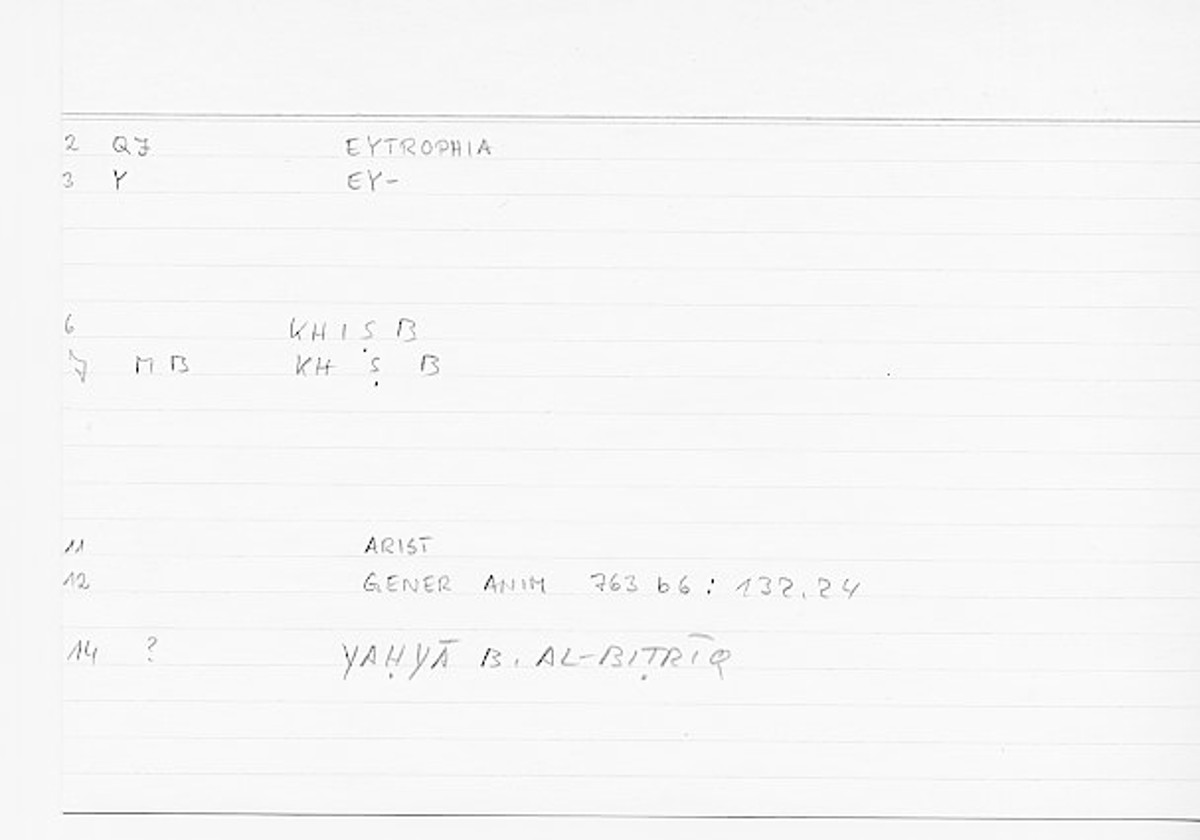 2 QJ EYTROPHIA
3 Y EY-
6 KHIṢB
7 MB KH Ṣ B
11 ARIST
12 GENER ANIM 763 b6 : 132.24
14 ? YAḤYĀ B. AL-BIṬRĪQ